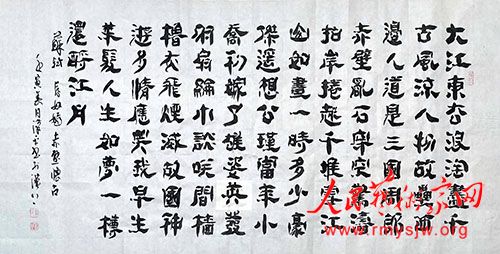 大江東去浪淘盡千
古風流人物故壘西
邊人道是三國周郎
赤壁亂石穿空驚濤
拍岸捲起千堆雪江
山如畫一時多少豪
傑遥想公瑾當年小
喬初嫁了雄姿英發
羽扇綸巾談咲間檣
櫓灰飛煙滅故國神
遊多情應笑我早生
華髮人生如夢一樽
還酹江月
蘇軾 念奴嬌 赤壁懷古
人民艺术家网
www.rmysjw.org